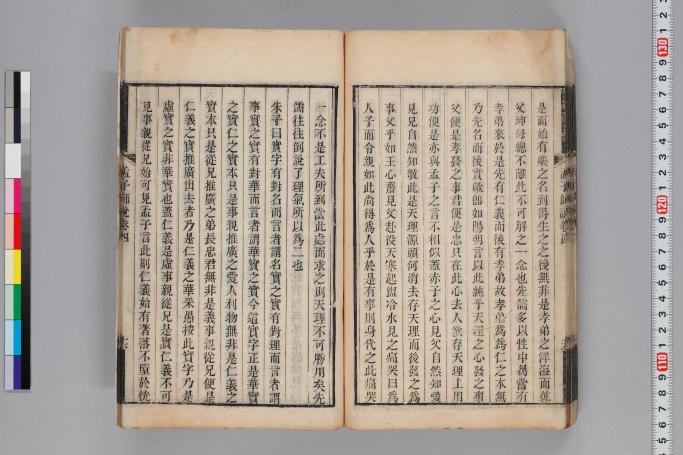 是而始有樂之名到得生之之後無非是孝弟之洋溢而乾
父坤母總不離此不可解之一念也先儒多以性中曷嘗有
孝弟來於是先有仁義而後有孝弟故孝弟為為仁之本無
乃先名而後實歟即如陽明言以此純乎天理之心發之事
父便是孝發之事君便是忠只在此心去人欲存天理上用
功便是亦與孟子之言不相似蓋赤子之心見父自然知愛
見兄自然知敬此是天理源頭何消去存天理而後發之為
事父乎如王心齋見父赴役天寒起盥冷水見之痛哭曰為
人子而令親如此尚得為人乎於是有事則身代之此痛哭
一念不是工夫所到當此處而求之則天理不可勝用矣先
儒往往倒說了理氣所以為二也
朱子曰實字有對名而言者謂名實之實有對理而言者謂
事實之實有對華而言者謂華實之實今這實字正是華實
之實仁之實本只是事親推廣之愛人利物無非是仁義之
實本只是從兄推廣之弟長忠君無非是義事親從兄便是
仁義之實推廣出去者乃是仁義之華采愚按此實字乃是
虛實之實非華實也蓋仁義是虛事親從兄是實仁義不可
見事親從兄始可見孟子言此則仁義始有著落不墮於恍
孟子師說卷四